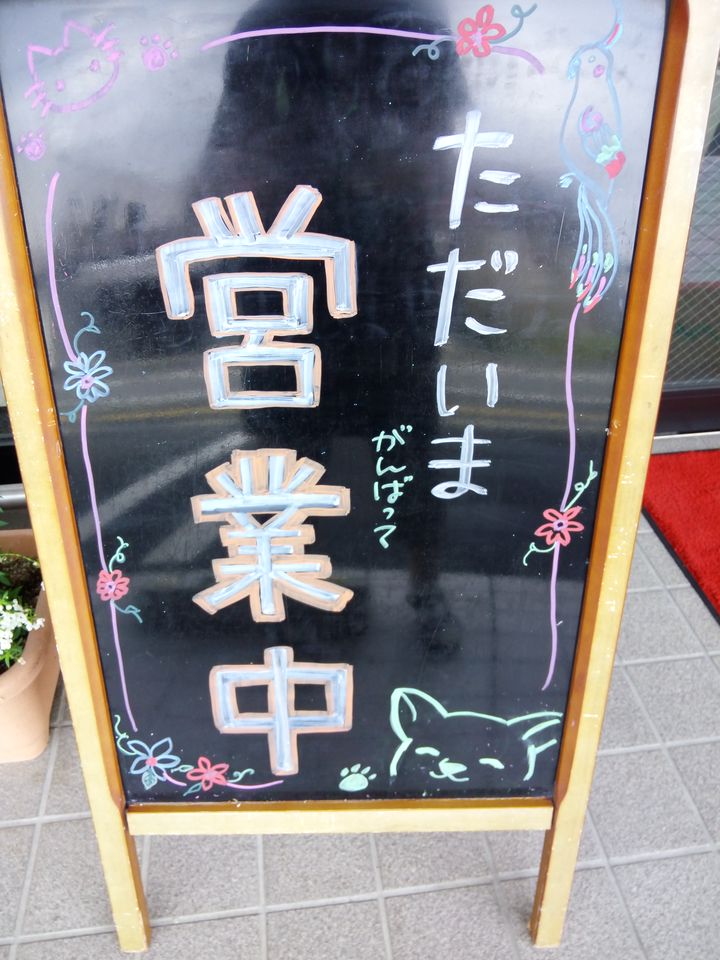 ただいま
がんばって
営業中